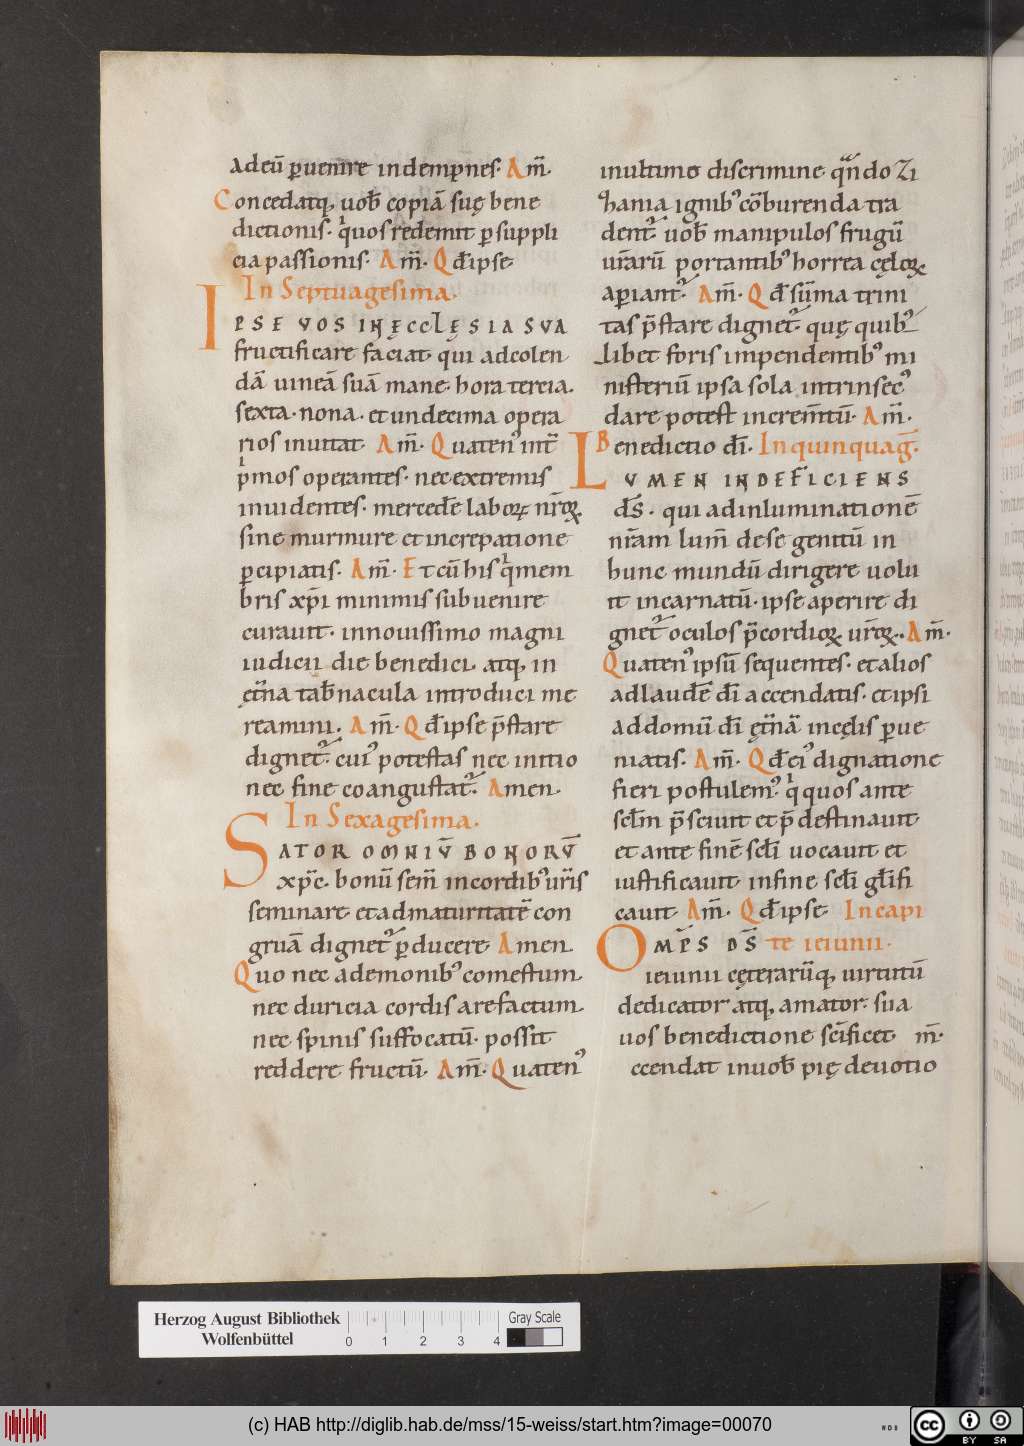 adeū ꝑuenire indempnes. Am̄.
Concedatq; uob̄ copiā suę bene
dictionis. quos redemit ꝑ suppli
cia passionis. Am̄. Qđ ipse
In Septuagesima.
IPSE VOS IN ĘCCLĘSIA SVA
fructificare faciat qui adcolen
dā uineā suā mane. hora tercia.
sexta. nona. et undecima opera
rios inuitat. Am̄. Quaten' int̄
primos operantes. nec extremis
inuidentes. mercedē laborꝝ nr̄orꝝ
sine murmure et increpatione
ꝑcipiatis. Am̄. Et cū his q̇ mem
bris xp̄i minimis subuenire
curauit. in nouissimo magni
iudicii die benedici. atq; in
ęt̄na tab̄nacula introduci me
reamini. Am̄. Qđ ipse p̄stare
dignet᷑. cui' potestas nec initio
nec fine coangustat᷑. Amen.
In Sexagesima.
SATOR OMNIV̄ BONORV̄
xp̄c. bonū sem̄ in cordib' ur̄is
seminare et ad maturitatē con
gruā dignet᷑ ꝑducere Amen.
Quo nec a demonib' comestum.
nec duricia cordis arefactum.
nec spinis suffocatū. possit
reddere fructū. Am̄. Quaten'
in ultimo discrimine. qn̄do Zi
hania ignib' cōburenda tra
dent᷑. uob̄ manipulos frugū
ur̄arū portantib' horrea cęlorꝝ
aꝑiant᷑. Am̄. Qđ sūma trini
tas p̄stare dignet᷑. quę quib'
libet foris impendentib' mi
nisteriū ipsa sola intrinsec'
dare potest increm̄tū. Am̄.
Benedictio dī. In quinquag̅.
LVMEN INDEFICIENS
ds̄. qui ad inluminationē
nr̄am lum̄ de se genitū in
hunc mundū dirigere uolu
it incarnatū. ipse aperire di
gnet᷑ oculos p̄cordiorꝝ ur̄orꝝ. Am̄.
Quaten' ipsū sequentes. et alios
ad laudē dī accendatis. et ipsi
ad domū dī ęt̄nā in cęlis ꝑue
niatis. Am̄. Qđ ei' dignatione
fieri postulem'. q̇ quos ante
sc̄lm p̄sciuit et p̄destinauit
et ante finē sc̄li uocauit et
iustificauit in fine sc̄li gl̄ifi
cauit Am̄. Qđ ipse In capi
OMP̄S DS̄ te ieiunii.
ieiunii cęterarūq; uirtutū
dedicator atq; amator. sua
uos benedictione sc̄ificet m̄.
ccendat in uob̄ pię deuotio
Herzog August Bibliothek
Wolfenbüttel
0 1 2 3 4
Gray Scale
(c) HAB http://diglib.hab.de/mss/15-weiss/start.htm?image=00070
cc BY SA